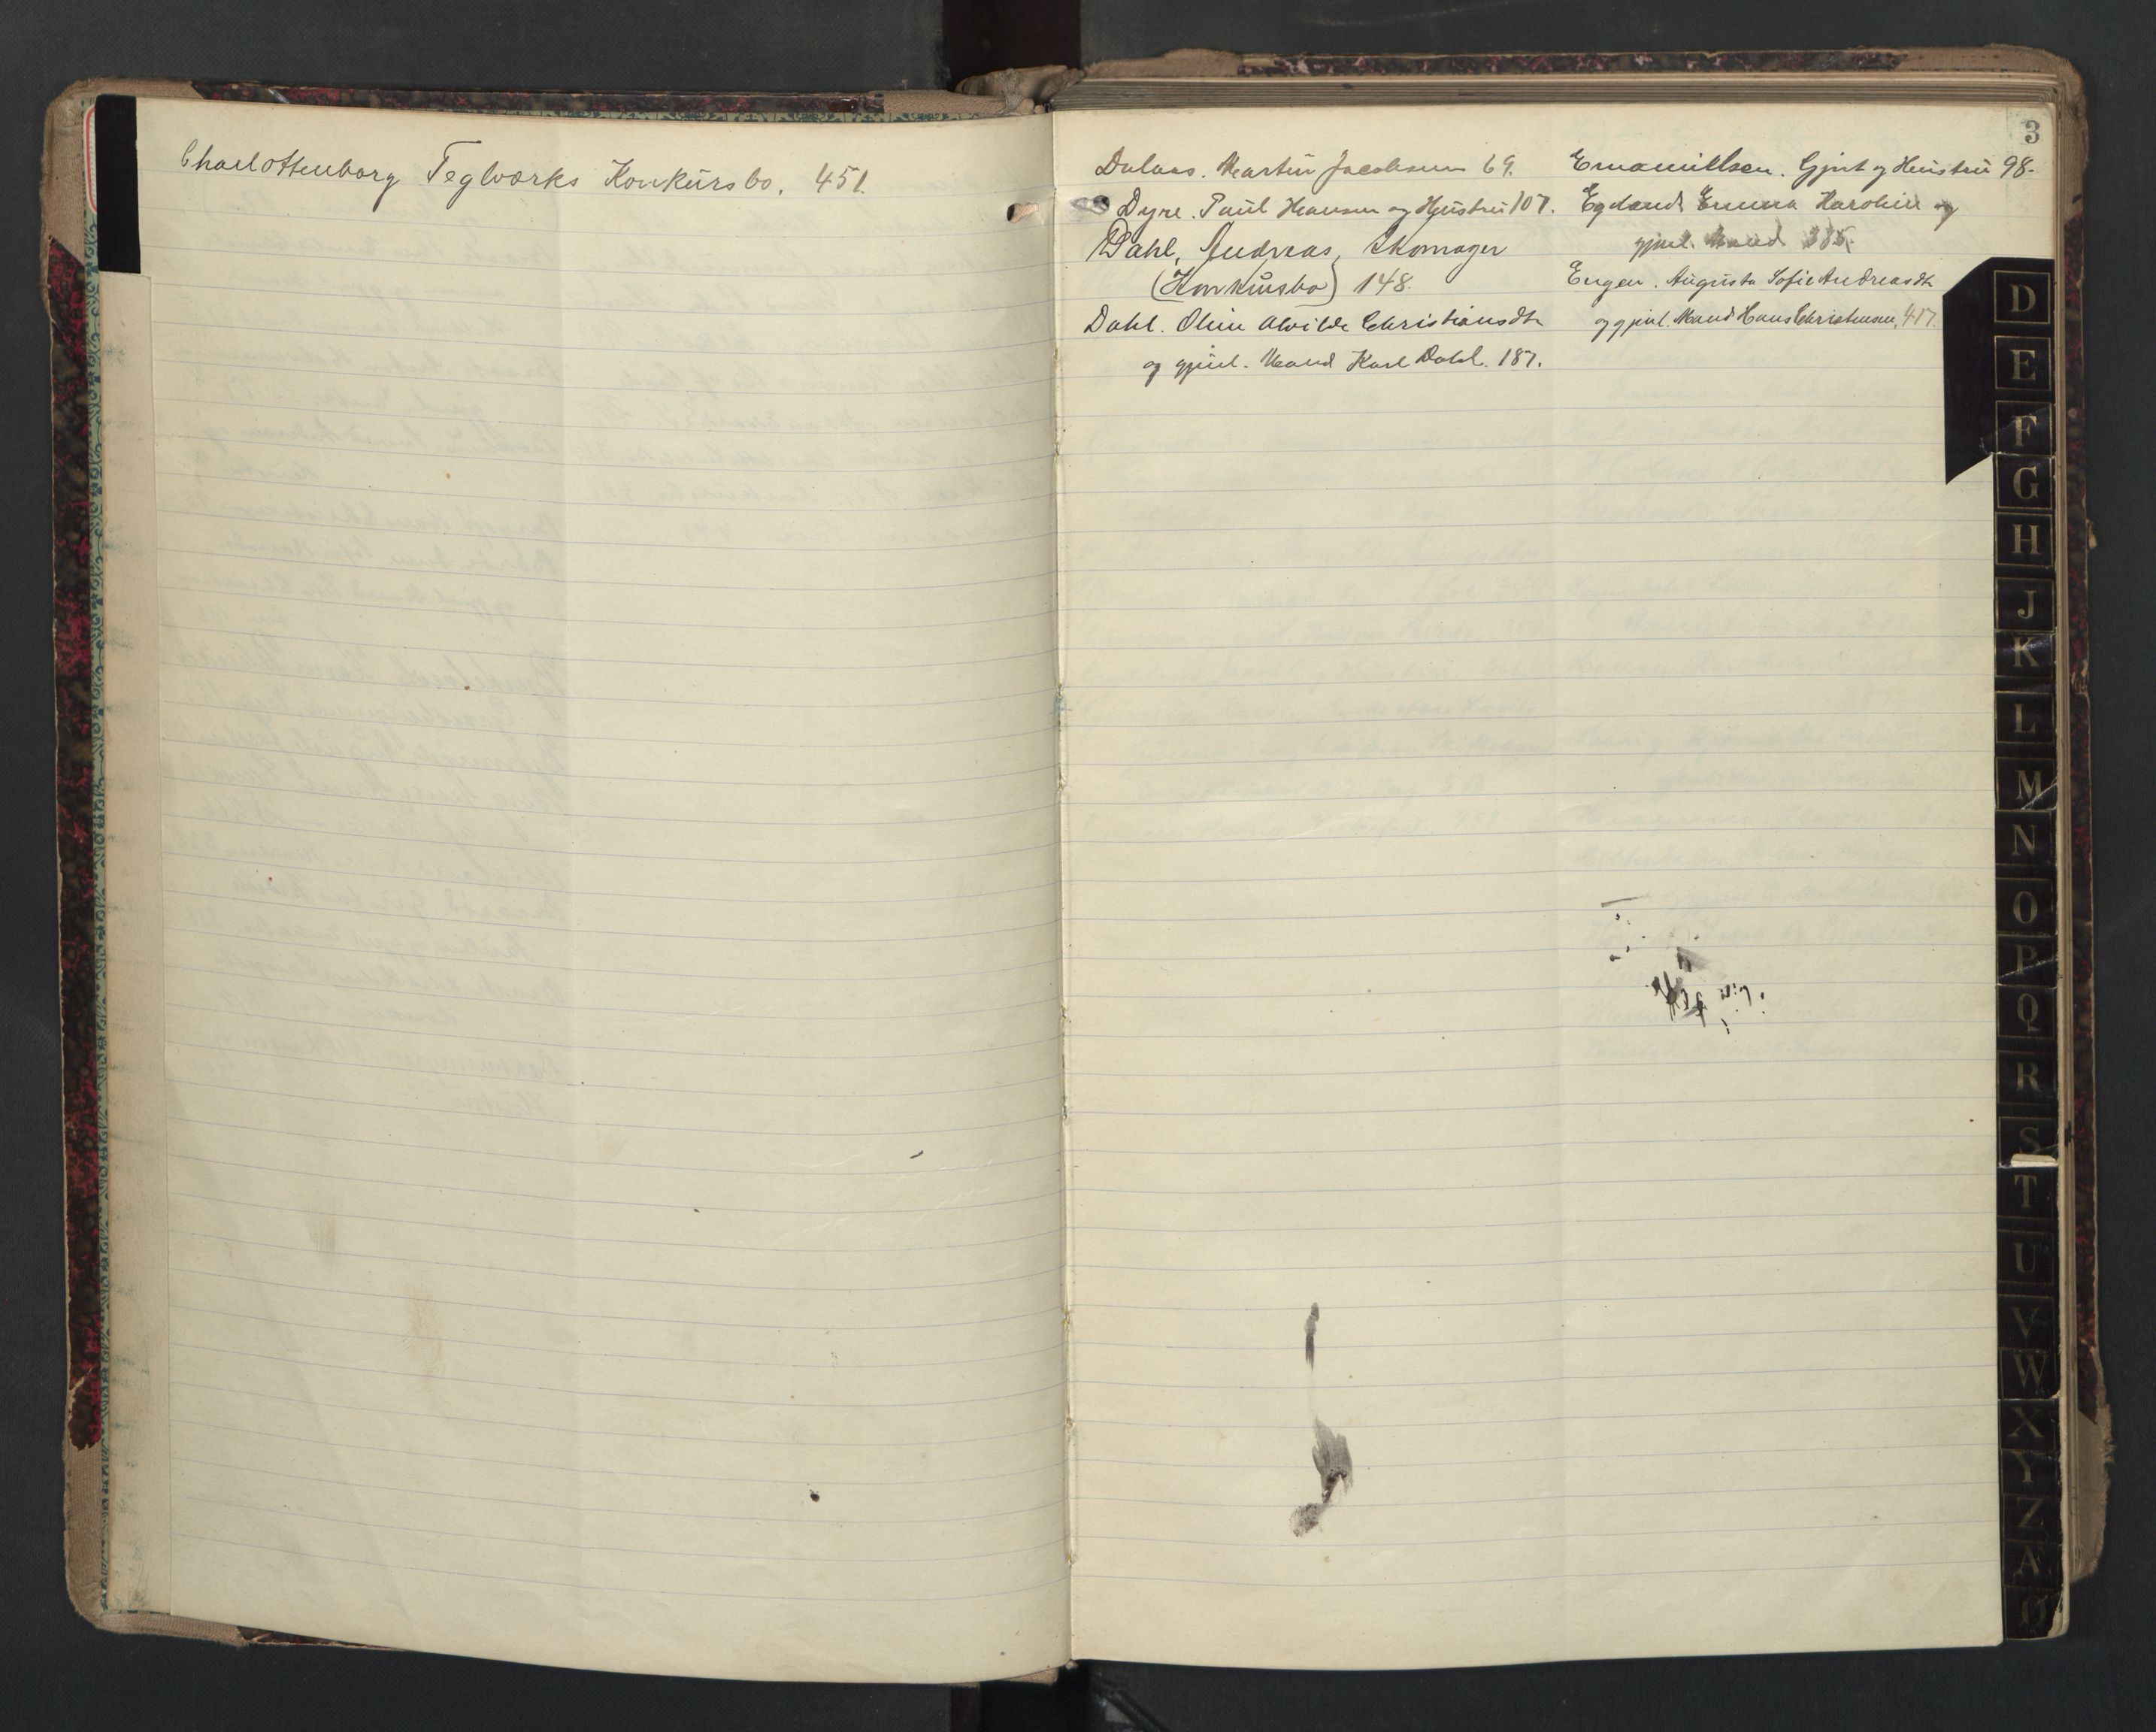 Charlottenborg Teglværks Konkursbo, 451.
3
Dalaas. Martin Jacobsen 69.
Dyre. Paul Hansen og Hustru 107.
Dahl, Andreas, Skomager
(Konkursbo) 148.
Dahl. Oline Alvilde Christiansdtr
og gjenl. Mand Karl Dahl. 187.
Emanuelsen. Gjert og Hustru 98.
Egeland Emma Karoline og
gjenl. Mand 385.
Engen. Augusta Sofie Andreasdtr
og gjenl. Mand Hans Christensen, 417.
D
E
F
G
H
J
K
L
M
N
O
P
Q
R
S
T
U
V
W
X
Y
Z
Æ
Ø